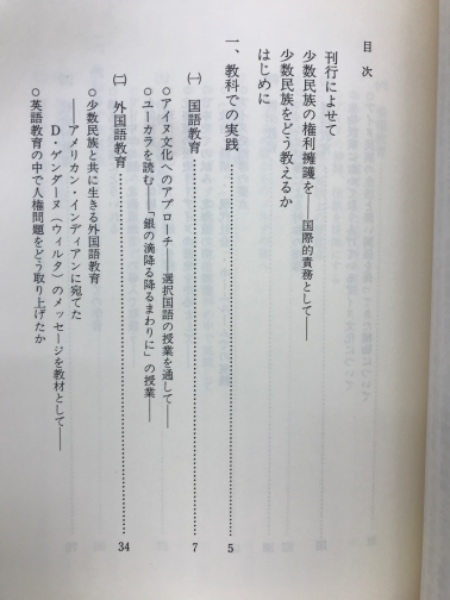 目次
刊行によせて
少数民族の権利擁護を――国際的責務として――
少数民族をどう教えるか
はじめに
一、教科での実践……………………………5
㈠　国語教育……………………………7
○アイヌ文化へのアプローチ――選択国語の授業を通して――
○ユーカラを読む――「銀の滴降る降るまわりに」の授業――
㈡　外国語教育……………………………34
○少数民族と共に生きる外国語教育
――アメリカン・インディアンに宛てた
D・ゲンダーヌ（ウィルタ）のメッセージを教材として――
○英語教育の中で人権問題をどう取り上げたか